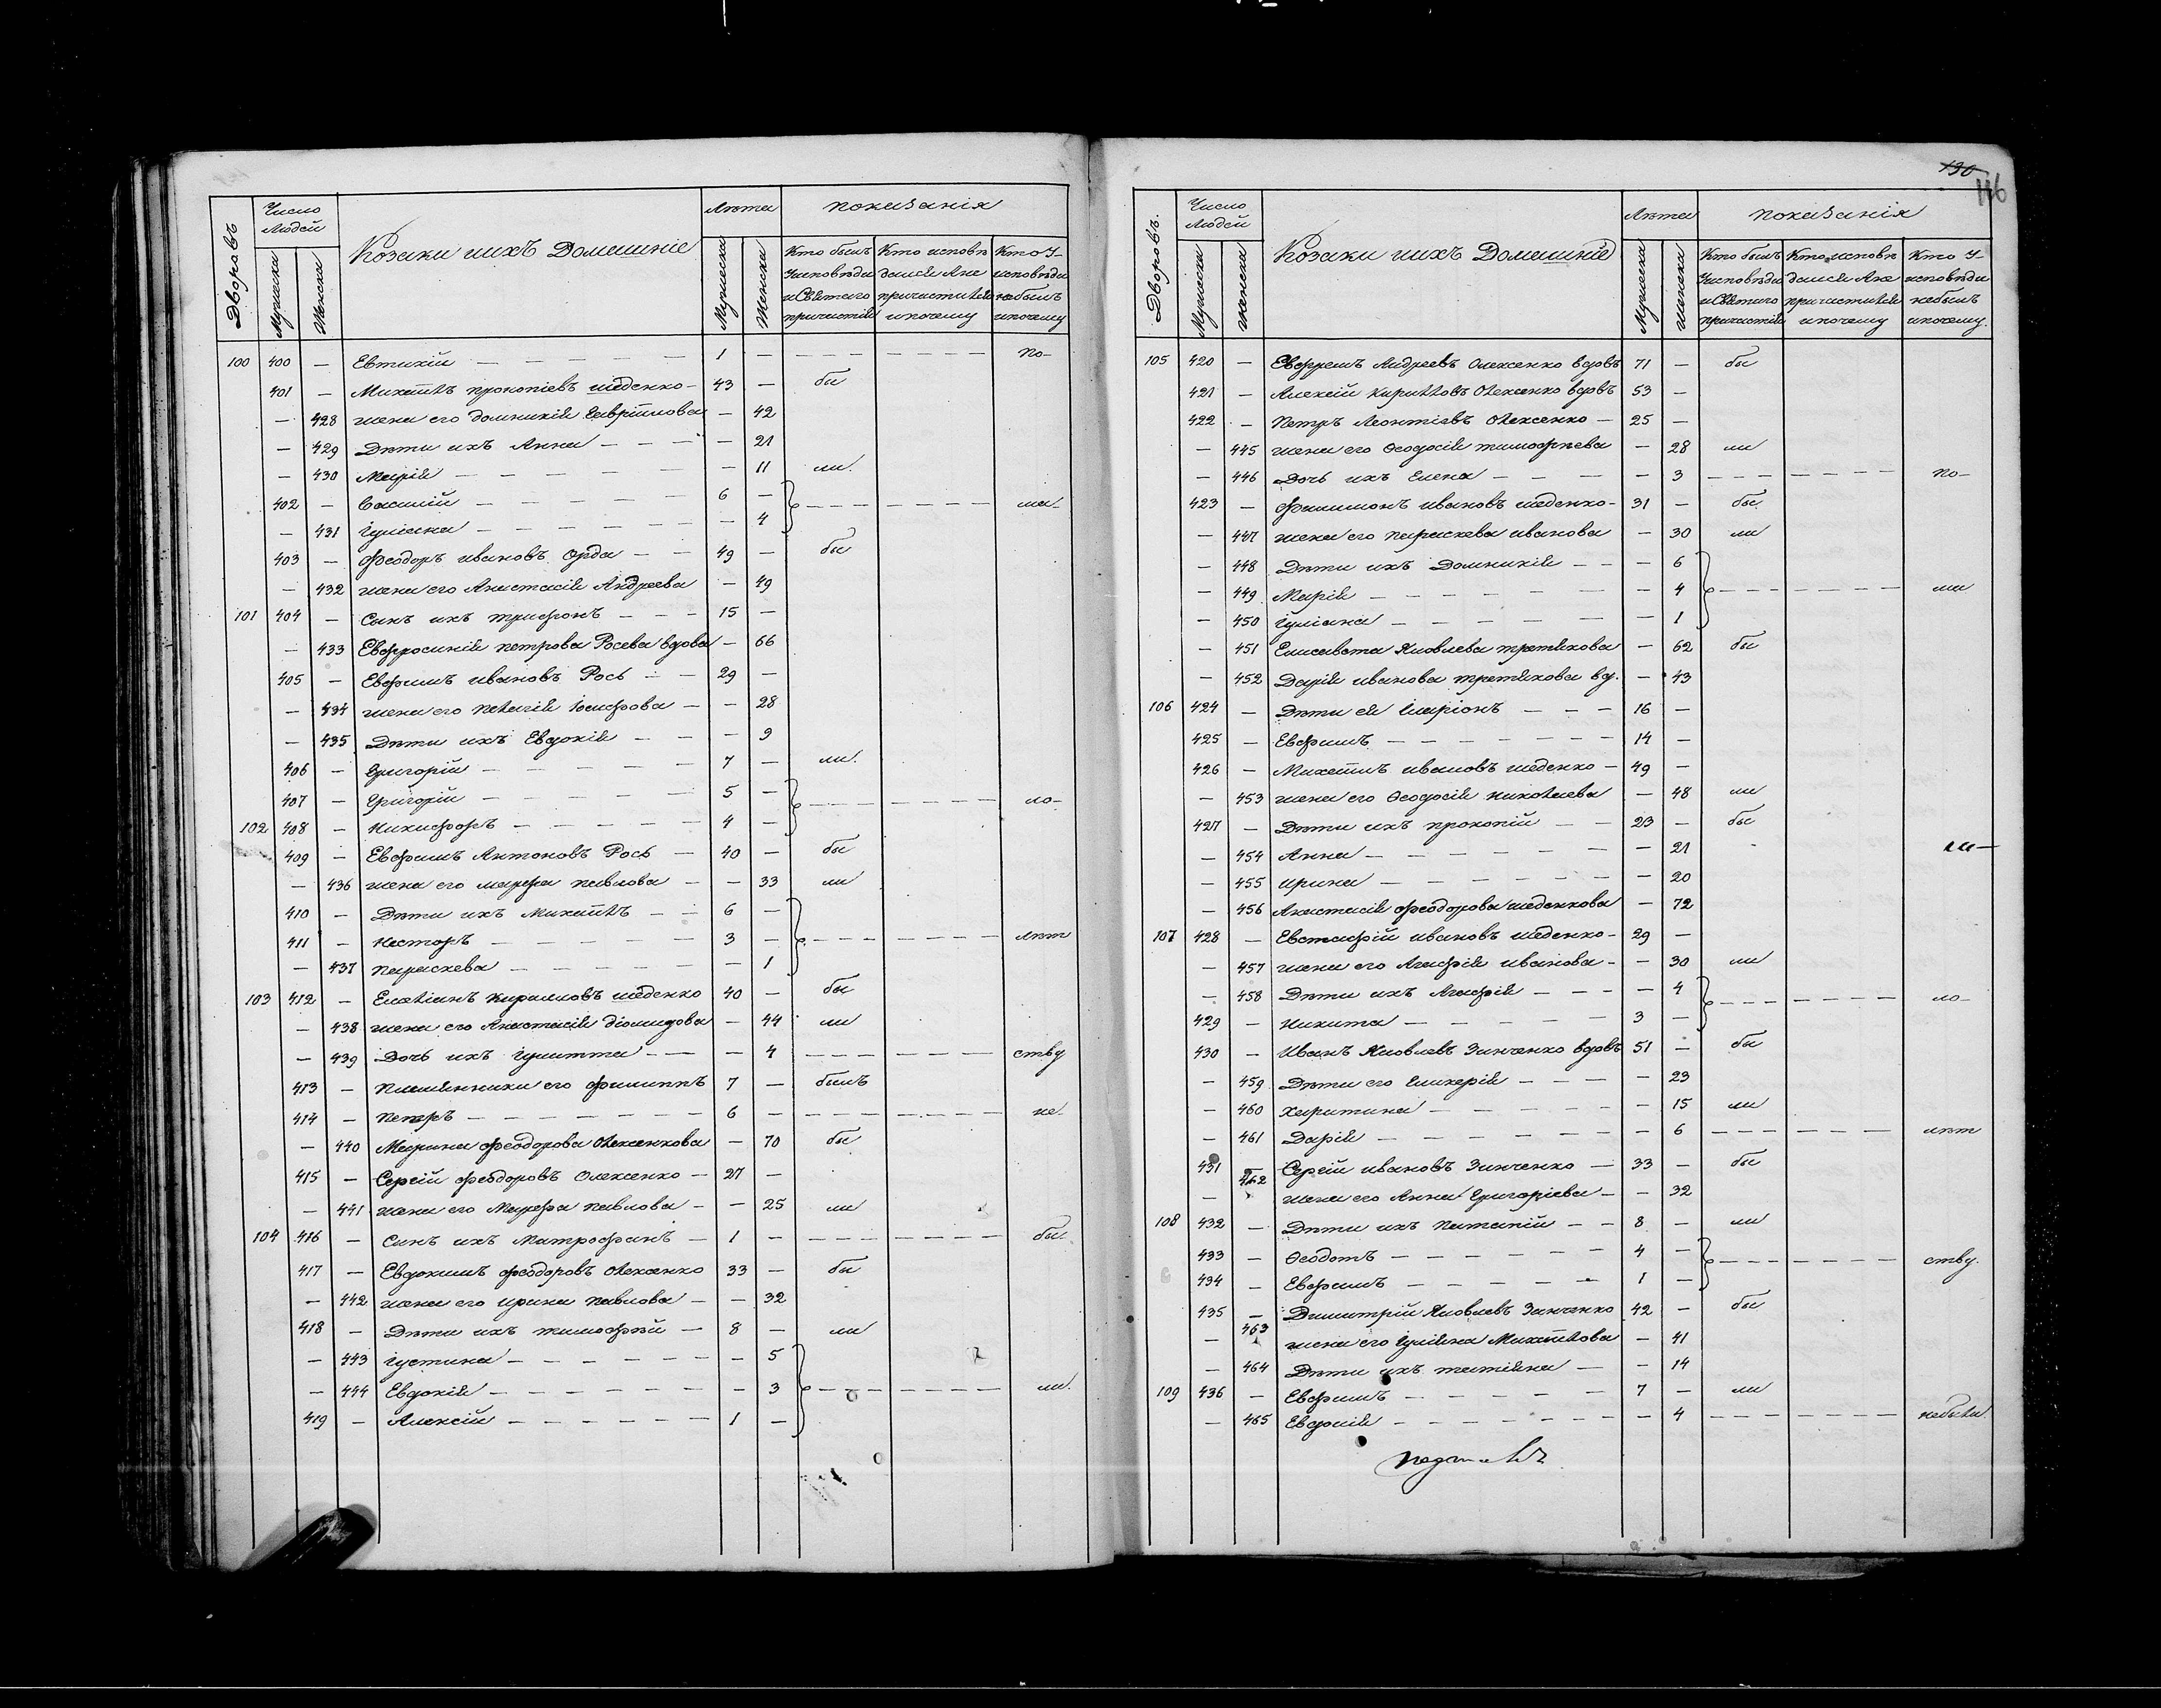 Дворовъ
Число Людей
Мужеска
Женска
Козаки иихъ Домашніе
Лѣта
Мужеска
Женска
показанія
Кто былъ Уисповѣди и Святаго причастія
Кто исповѣдался Ане причастился ипочему
Кто У исповѣди небылъ ипочему
100 400 — Евтихій — 1 — по-
401 — Михаилъ прокопіевъ шеденко 43 — бы
— 428 жена его домникія Гавріилова — 42
— 429 Дѣти ихъ Анна — 21
— 430 Марія — 11 ли.
402 — Василій 6 —
— 431 Іуліана — 4 ма-
403 — Феодоръ ивановъ Орда 49 — бы
— 432 жена его Анастасія Андреева — 49
101 404 — Сынъ ихъ трифонъ 15 —
— 433 Евфросинія петрова Росева вдова — 66
405 — Евфимъ ивановъ Рось 29 —
— 434 жена его Пелагія Іосифова — 28
— 435 Дѣти ихъ Евдокія — 9
406 — Григорій 7 — ли.
407 — Григорій 5 —
102 408 — Никифоръ 4 — ло-
409 — Евфимъ Антоновъ Рось 40 — бы
— 436 жена его марфа павлова — 33 ли
410 — Дѣти ихъ Михаилъ 6 —
411 — Несторъ 3 — лѣт
— 437 параскева — 1
103 412 — Емеліянъ кириловъ шеденко 40 — бы
— 438 жена его Анастасія діомидова — 44 ли
— 439 Дочь ихъ Іулитта — 4 ству
413 — Племянники его филиппъ 7 — былъ
414 — Петръ 6 — не-
— 440 Марина феодорова Олексенкова — 70 бы
415 — Сергій феодоровъ Олексенко 27 —
— 441 жена его Марфа павлова — 25 ли
104 416 — Сынъ ихъ Митрофанъ 1 — бы-
417 — Евдокимъ феодоровъ Олексенко 33 — бы
— 442 жена его ирина павлова — 32
418 — Дѣти ихъ тимофѣй 8 — ли
— 443 Іустина — 5
— 444 Евдокія — 3 ли.
419 — Алексій 1 —
130
116
Дворовъ.
Число Людей
Мужеска
Женска
Козаки иихъ Домашніе
Лѣта
Мужеска
Женска
показанія
Кто былъ Уисповѣди и Святаго причастія
Кто исповѣдался Ане причастился ипочему
Кто У исповѣди небылъ ипочему.
105 420 — Евфремъ Андреевъ Олексенко вдовъ 71 — бы
421 — Алексій Кирилловъ Олексенко вдовъ 53 —
422 — Петръ Леонтіевъ Олексенко 25 —
— 445 жена его Ѳеодосія тимофѣева — 28 ли
— 446 Дочь ихъ Елена — 3 по-
423 — Филимонъ ивановъ шеденко 31 — бы
— 447 жена его параскева иванова — 30 ли
— 448 Дѣти ихъ Домникія — 6
— 449 Марія — 4 ма
— 450 Іуліана — 1
— 451 Елисавета Яковлева третякова — 62 бы
— 452 Дарія иванова третякова вд. — 43
106 424 — Дѣти ея Иларіонъ 16 —
425 — Евфимъ 14 —
426 — Михаилъ ивановъ шеденко 49 —
— 453 жена его Ѳеодосія николаева — 48 ли
427 — Дѣти ихъ прокопій 23 — бы
— 454 Анна — 21 ли
— 455 ирина — 20
— 456 Анастасія Феодорова шеденкова — 72
107 428 — Евстафій ивановъ шеденко 29 —
— 457 жена его Агафія иванова — 30 ли
— 458 Дѣти ихъ Агафія — 4
429 — Никита 3 — ло-
430 — Иванъ Яковлевъ Зинченко вдовъ 51 — бы
— 459 Дѣти его Гликерія — 23
— 460 харитина — 15 ли
— 461 Дарія — 6 лѣт
431 — Сергій ивановъ Зинченко 33 — бы
— 462 жена его Анна Григоріева — 32
108 432 — Дѣти ихъ 8 — ли
433 — Ѳеодотъ 4 —
434 — Евфимъ 1 — ству.
435 — Димитрій Яковлевъ Зинченко 42 — бы
— 463 жена его Іуліана Михаилова — 41
— 464 Дѣти ихъ татіяна — 14
109 436 — Евфимъ 7 — ли
— 465 Евдокія — 4 небыла.